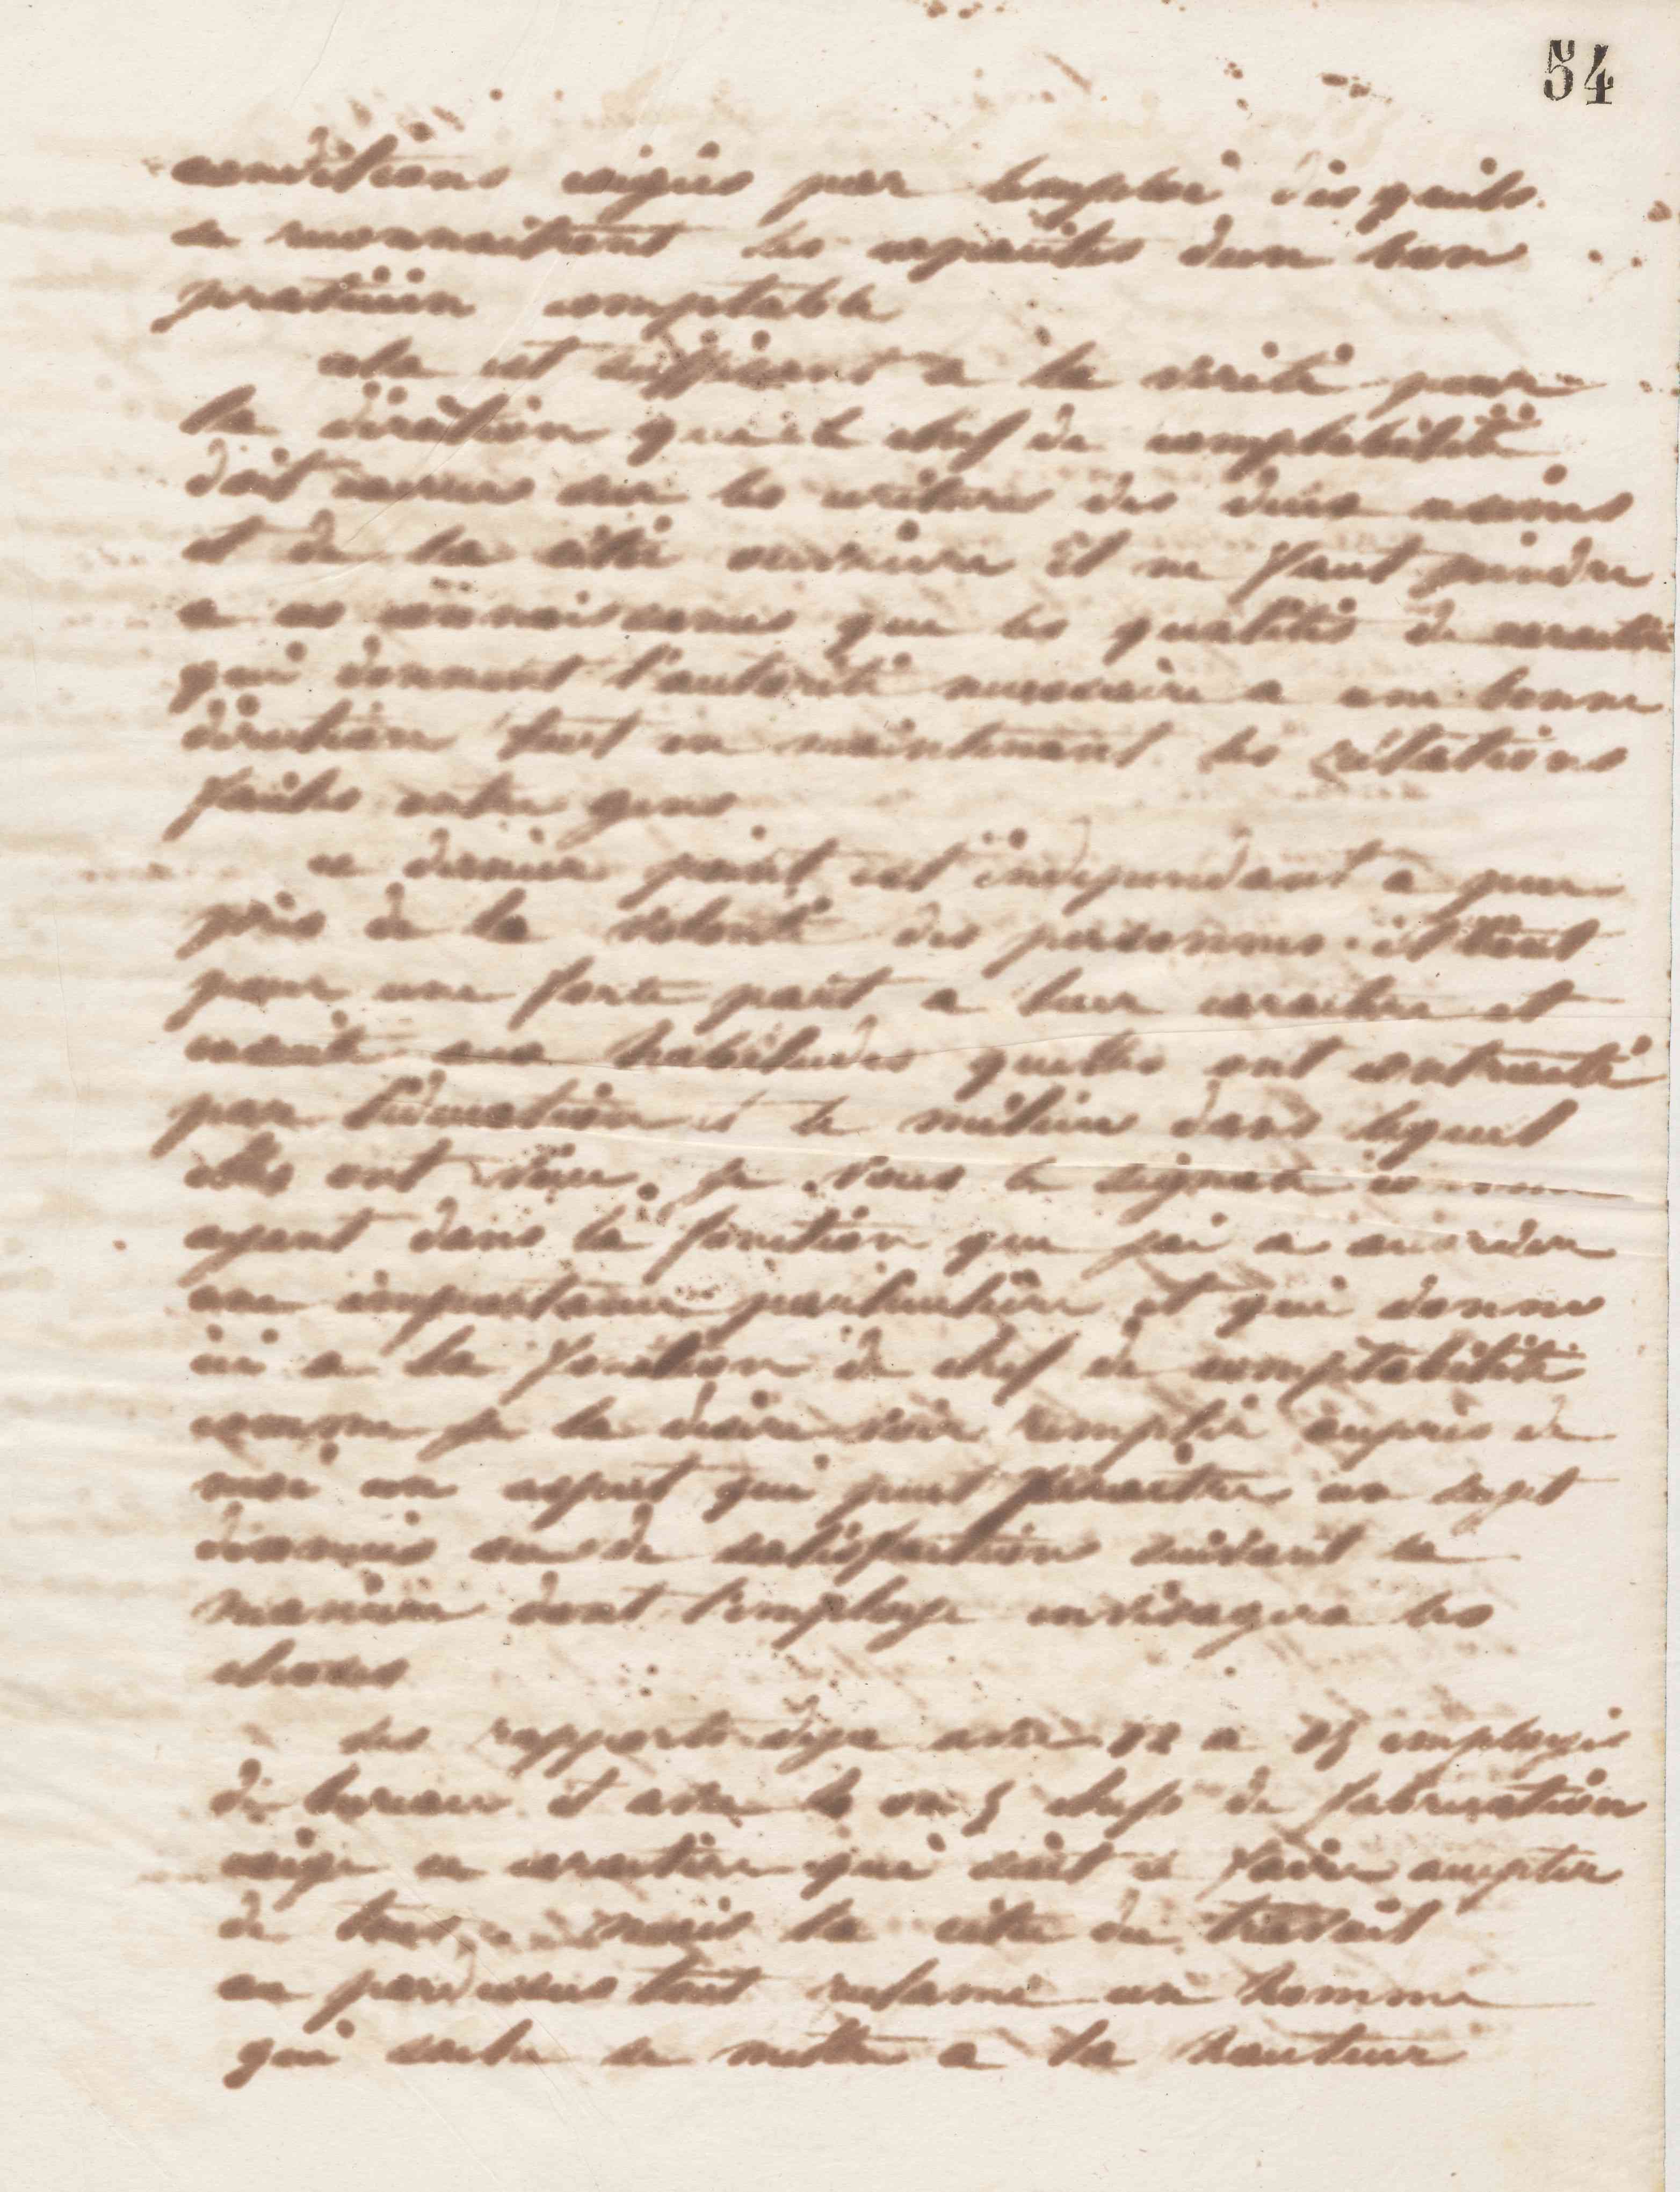 54
conditions exigées par l'emploi dès qu'ils
se reconnaitront les capacités d'un bon
praticien comptable
cela est suffisant a la vérité pour
la direction que le chef de comptabilité
doit exercer sur les écritures des deux usines
et de la cité ouvrière Il ne faut joindre
a ces connaissances que les qualités de
qui donnent l'autorité nécessaire a une bonne
direction tout en maintenant les relations
faciles entre gens
ce dernier point est indépendant a peu
près de la volonté des personnes il tient
pour une forte part a leur caractère et
ensuite aux habitudes qu'elles ont contracté
par l'éducation et le milieu dans lequel
elles ont vécu. je vous le signale
ayant dans la fonction que j'ai a accorder
une importance particulière et qui donne
ici a la fonction de chef de comptabilité
comme je la désire voir remplir auprès de
moi un aspect qui peut paraître un sujet
d'ennuis ou de satisfaction suivant la
manière dont l'employé envisagera les
choses
des rapports déja avec 12 a 15 employés
de bureau et avec 4 ou 5 chefs de fabrication
exige ce caractère qui sait se faire accepter
de tous mais la cité du travail
au pardessus tout réclame un homme
qui sache se mettre a la hauteur